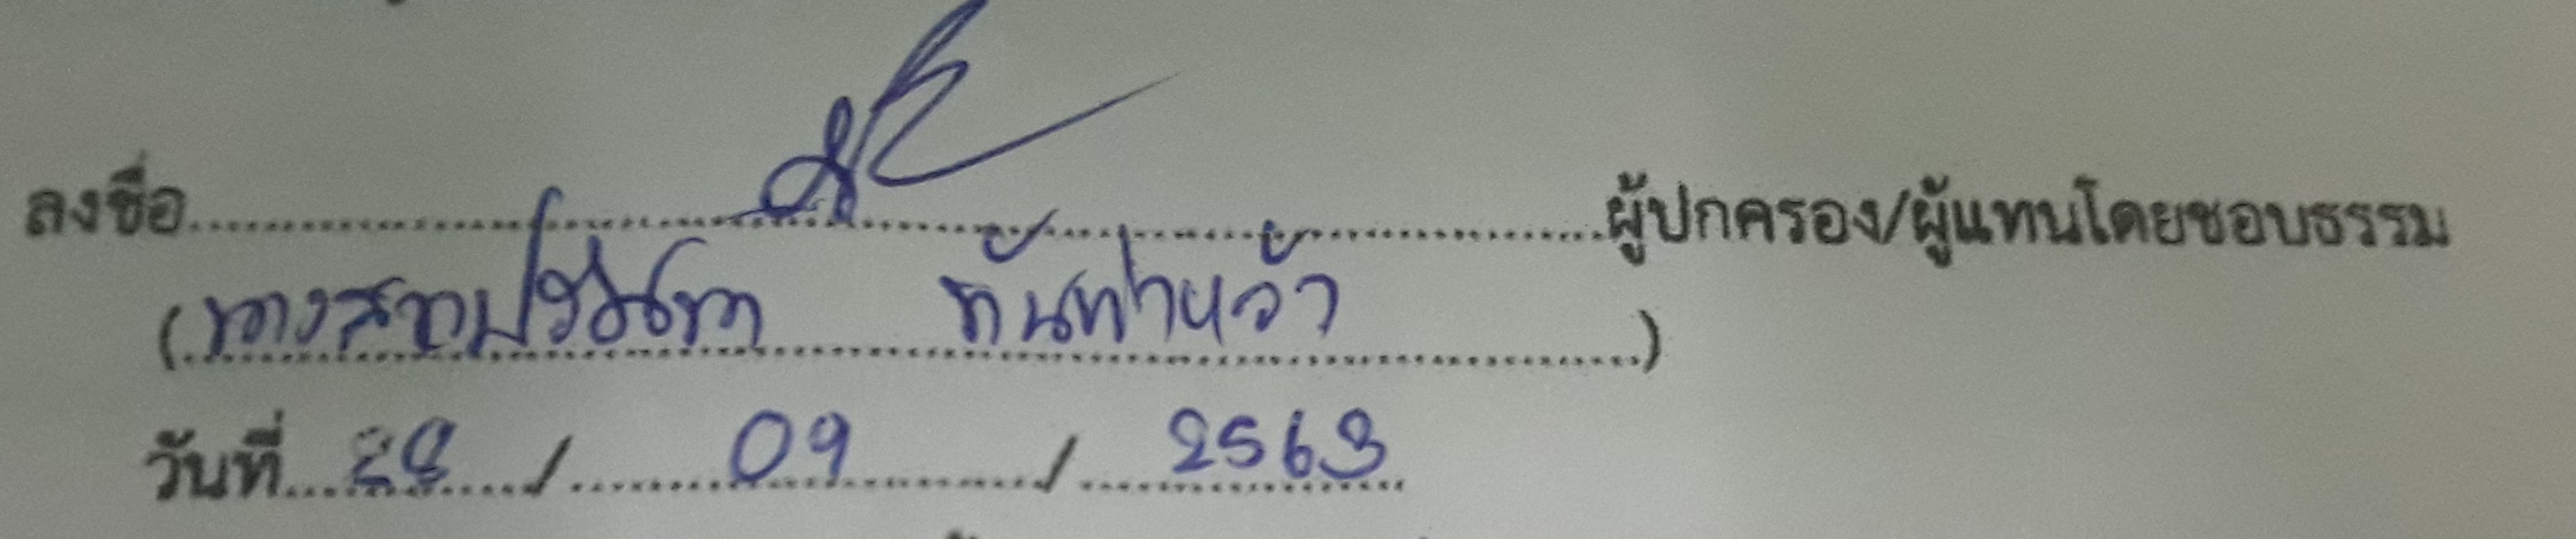 ลงชื่อ........................................ผู้ปกครอง/ผู้แทนโดยชอบธรรม
(นางสาวปวีณา ทันท่าหว้า)
วันที่ 28 / 09 / 2563